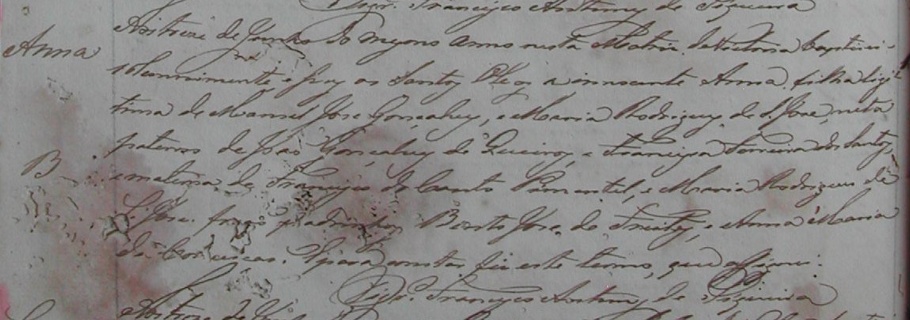 Vigr.º Francisco Antunes de Siqueira
Anna
Aos treze de Junho do mesmo anno nesta Matriz da Victoria baptisei
solemnimente, e puz os Santos Oleos a innocente Anna, filha legi
tima de Manoel Jose Gonçalves, e Maria Rodrigues de S. Jose, neta
paterna de João Gonçalves de Queiroz, e Francisca Ferreira dos Santos,
B
e materna de Francisco do Couto Pimentel, e Maria Rodrigues de
S. Jose: forão padrinhos Bento Jose de Freitas, e Anna Maria
da Conceicao. E para constar fiz este termo, que assignei.
Vigr.º Francisco Antunes de Siqueira
Aos treze de